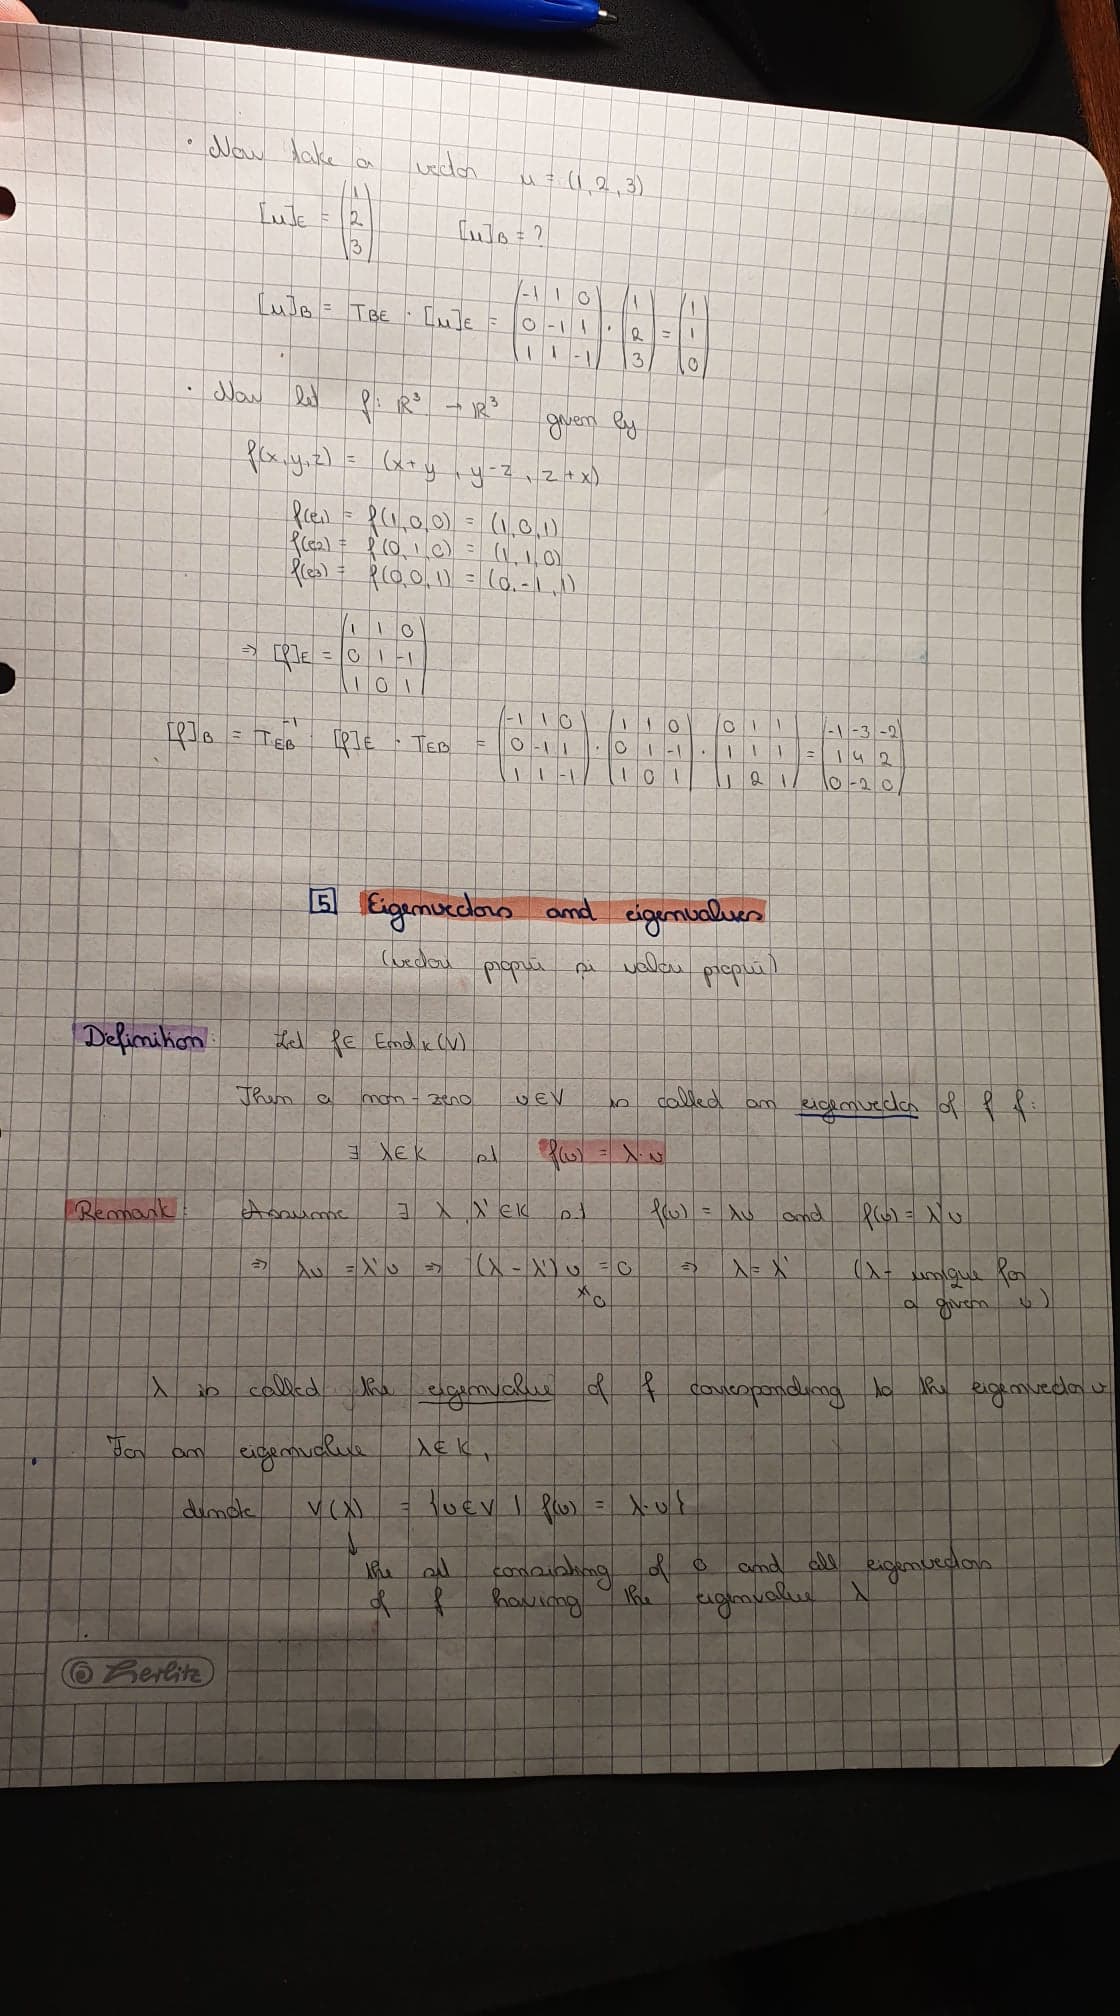 · Now take a vector u = (1, 2, 3)
[u]E = (1 2 3) [u]B = ?
[u]B = TBE · [u]E = (-1 1 0 / 0 -1 1 / 1 1 -1) · (1 2 3) = (1 1 0)
· Now let f: ℝ³ → ℝ³ given by
f(x,y,z) = (x+y, y-z, z+x)
f(e1) = f(1,0,0) = (1,0,1)
f(e2) = f(0,1,0) = (1,1,0)
f(e3) = f(0,0,1) = (0,-1,1)
⇒ [f]E = (1 1 0 / 0 1 -1 / 1 0 1)
[f]B = TEB⁻¹ · [f]E · TEB = (-1 1 0 / 0 -1 1 / 1 1 -1) · (1 1 0 / 0 1 -1 / 1 0 1) · (0 1 1 / 1 1 1 / 1 2 1) = (-1 -3 -2 / 1 4 2 / 0 -2 0)
5 Eigenvectors and eigenvalues
(vectori proprii și valori proprii)
Definition: Let f ∈ EndK(V)
Then a non-zero v∈V is called an eigenvector of f if:
∃ λ∈K st f(v) = λ·v
Remark: Assume ∃ λ, λ'∈K st f(v) = λv and f(v) = λ'v
⇒ λv = λ'v ⇒ (λ - λ')v = 0 ⇒ λ = λ' (λ- unique for
≠0 a given v)
λ is called the eigenvalue of f corresponding to the eigenvector v
· For an eigenvalue λ∈K,
denote V(λ) = {v∈V | f(v) = λ·v}
↓
the set consisting of 0 and all eigenvectors
of f having the eigenvalue λ
Herlitz